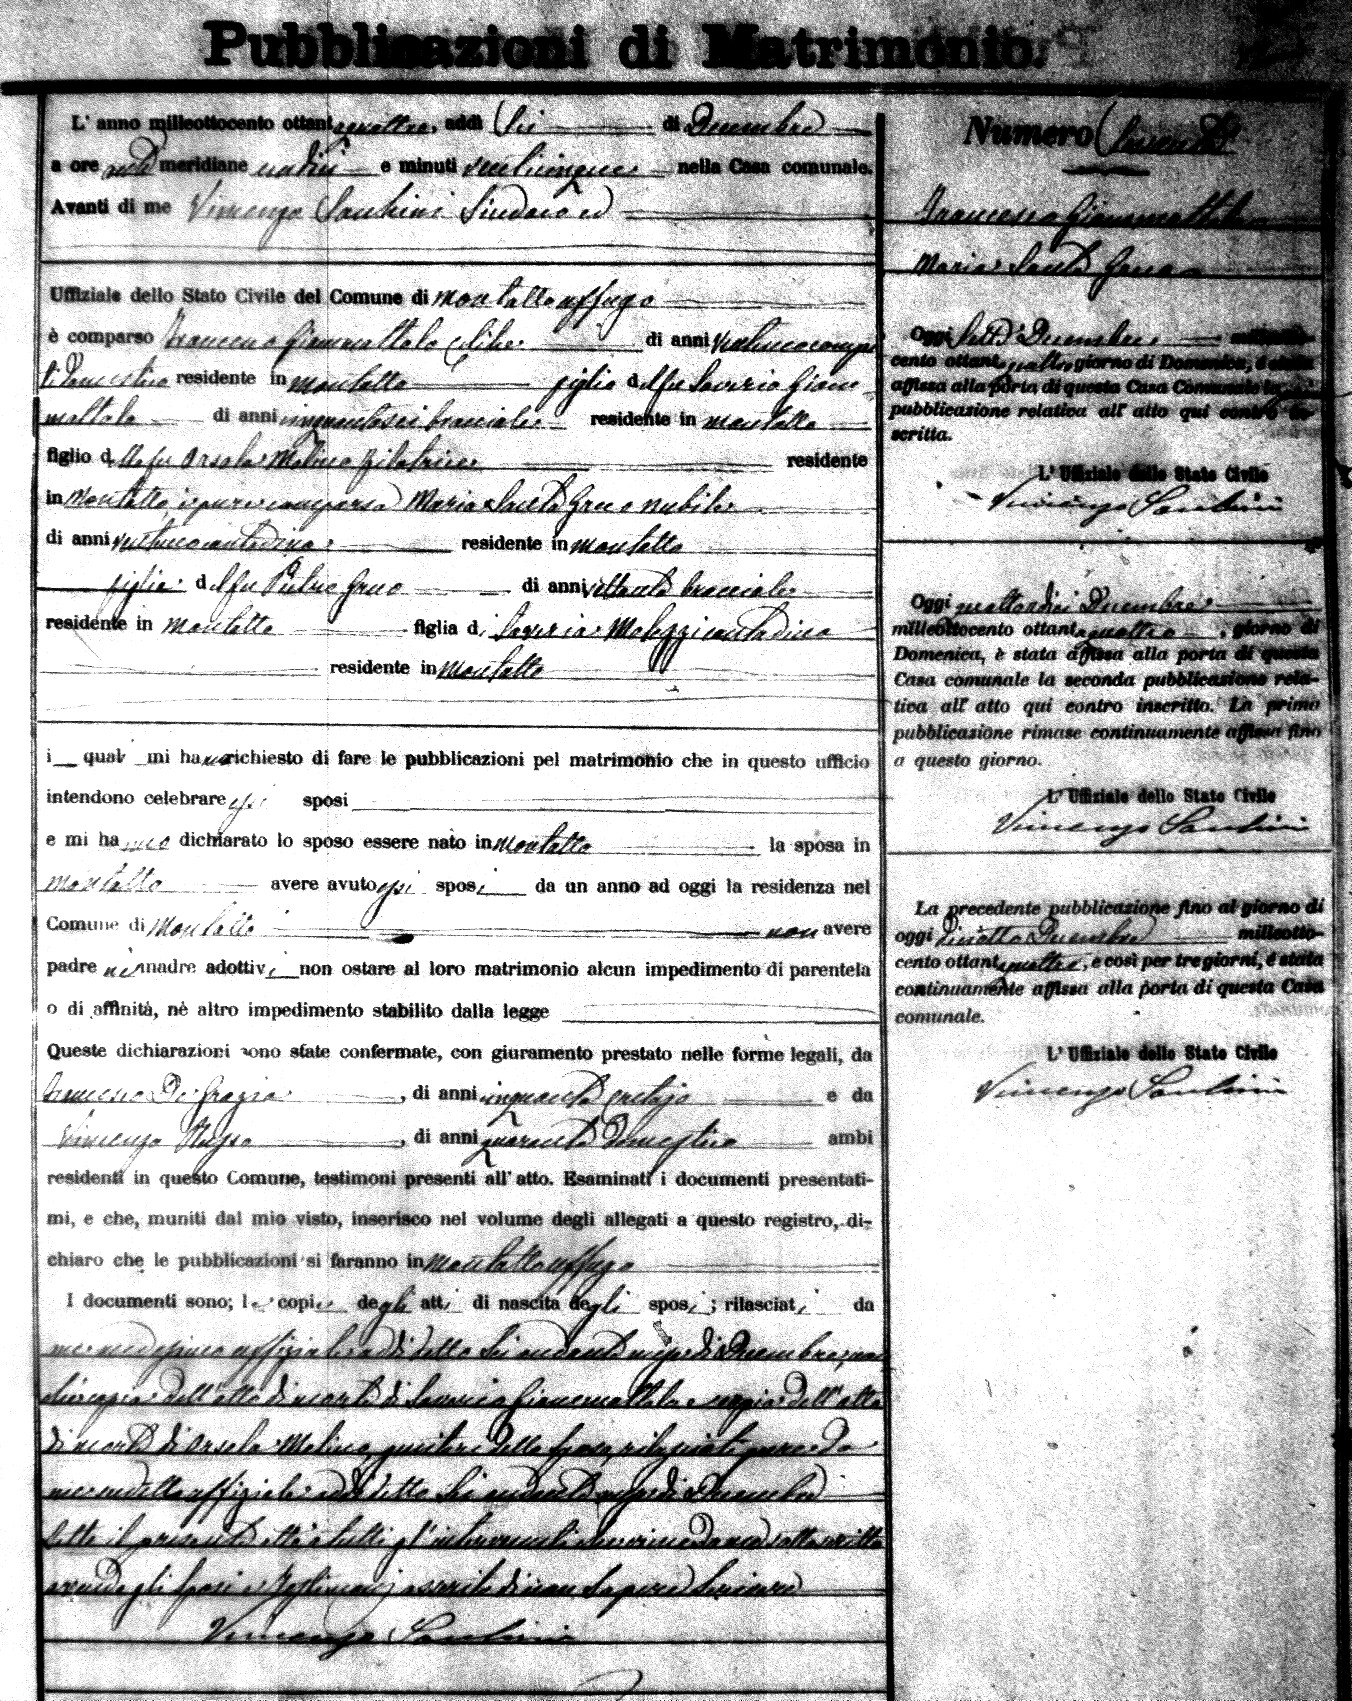 Pubblicazioni di Matrimonio.
L' anno milleottocento ottantaquattro, addì Sei di Decembre
a ore anti meridiane undici e minuti venticinque nella Casa comunale.
Avanti di me Vincenzo Santini Sindaco ed
Uffiziale dello Stato Civile del Comune di Montalto uffugo
è comparso Francesco Giammattolo celibe di anni
Domestico residente in Montalto figlio del fu Saverio Giam
mattolo di anni cinquantasei bracciale residente in Montalto
figlio della fu Orsola Molino filatrice residente
in Montalto è pure comparsa Maria Santa Greco nubile
di anni contadina residente in Montalto
figlia del fu Pietro Greco di anni settanta bracciale
residente in Montalto figlia di Saveria contadina
residente in Montalto
i quali mi hanno richiesto di fare le pubblicazioni pel matrimonio che in questo ufficio
intendono celebrare essi sposi
e mi hanno dichiarato lo sposo essere nato in Montalto la sposa in
Montalto avere avuto essi sposi da un anno ad oggi la residenza nel
Comune di Montalto non avere
padre nè madre adottivi non ostare al loro matrimonio alcun impedimento di parentela
o di affinità, nè altro impedimento stabilito dalla legge
Queste dichiarazioni sono state confermate, con giuramento prestato nelle forme legali, da
Francesco De Grazia, di anni cinquanta e da
Vincenzo, di anni quaranta Domestico ambi
residenti in questo Comune, testimoni presenti all' atto. Esaminati i documenti presentati-
mi, e che, muniti dal mio visto, inserisco nel volume degli allegati a questo registro, di-
chiaro che le pubblicazioni si faranno in Montalto uffugo
I documenti sono; le copie degli atti di nascita degli sposi; rilasciati da
me medesimo uffiziale addì detto Sei andante mese di Decembre, 
copia dell' atto di morte di Saverio Giammattolo e copia dell' atto
di morte di Orsola Molino, genitori dello sposo, rilasciati pure da
me medesimo uffiziale addì detto Sei andante mese di Decembre
Letto il presente atto a tutti gl' intervenuti sottoscritto
avendo gli sposi e Testimoni asserito di non sapere scrivere
Vincenzo Santini
Numero
Francesco Giammattolo
Maria Santa Greco
Oggi Sette Decembre milleotto-
cento ottantaquattro giorno di Domenica, è stata
affissa alla porta di questa Casa Comunale la
pubblicazione relativa all' atto qui contro in-
scritta.
L' Uffiziale dello Stato Civile
Vincenzo Santini
Oggi quattordici Decembre
milleottocento ottantaquattro, giorno di
Domenica, è stata affissa alla porta di questa
Casa comunale la seconda pubblicazione rela-
tiva all' atto qui contro inscritto. La prima
pubblicazione rimase continuamente affissa fino
a questo giorno.
L' Uffiziale dello Stato Civile
Vincenzo Santini
La precedente pubblicazione fino al giorno di
oggi diciotto Decembre milleotto-
cento ottantaquattro, e così per tre giorni, è stata
continuamente affissa alla porta di questa Casa
comunale.
L' Uffiziale dello Stato Civile
Vincenzo Santini